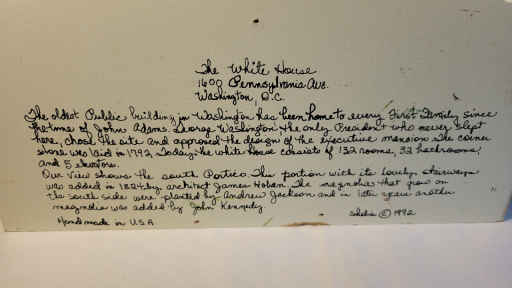 The White House
1600 Pennsylvania Ave.
Washington, D.C.
The oldest Public building in Washington has been home to every First Family since
the time of John Adams. George Washington the only President who never slept
here, chose the site and approved the design of the executive mansion. The corner
stone was laid in 1792. Today, the white House consists of 132 rooms, 32 bathrooms,
and 5 elevators.
Our View shows the South Portico. This portion with its lovely stairways
was added in 1824 by architect James Hoban. The magnolias that grow on
the South side were planted by Andrew Jackson and in later years another
magnolia was added by John Kennedy.
Handmade in U.S.A
Shelia © 1992